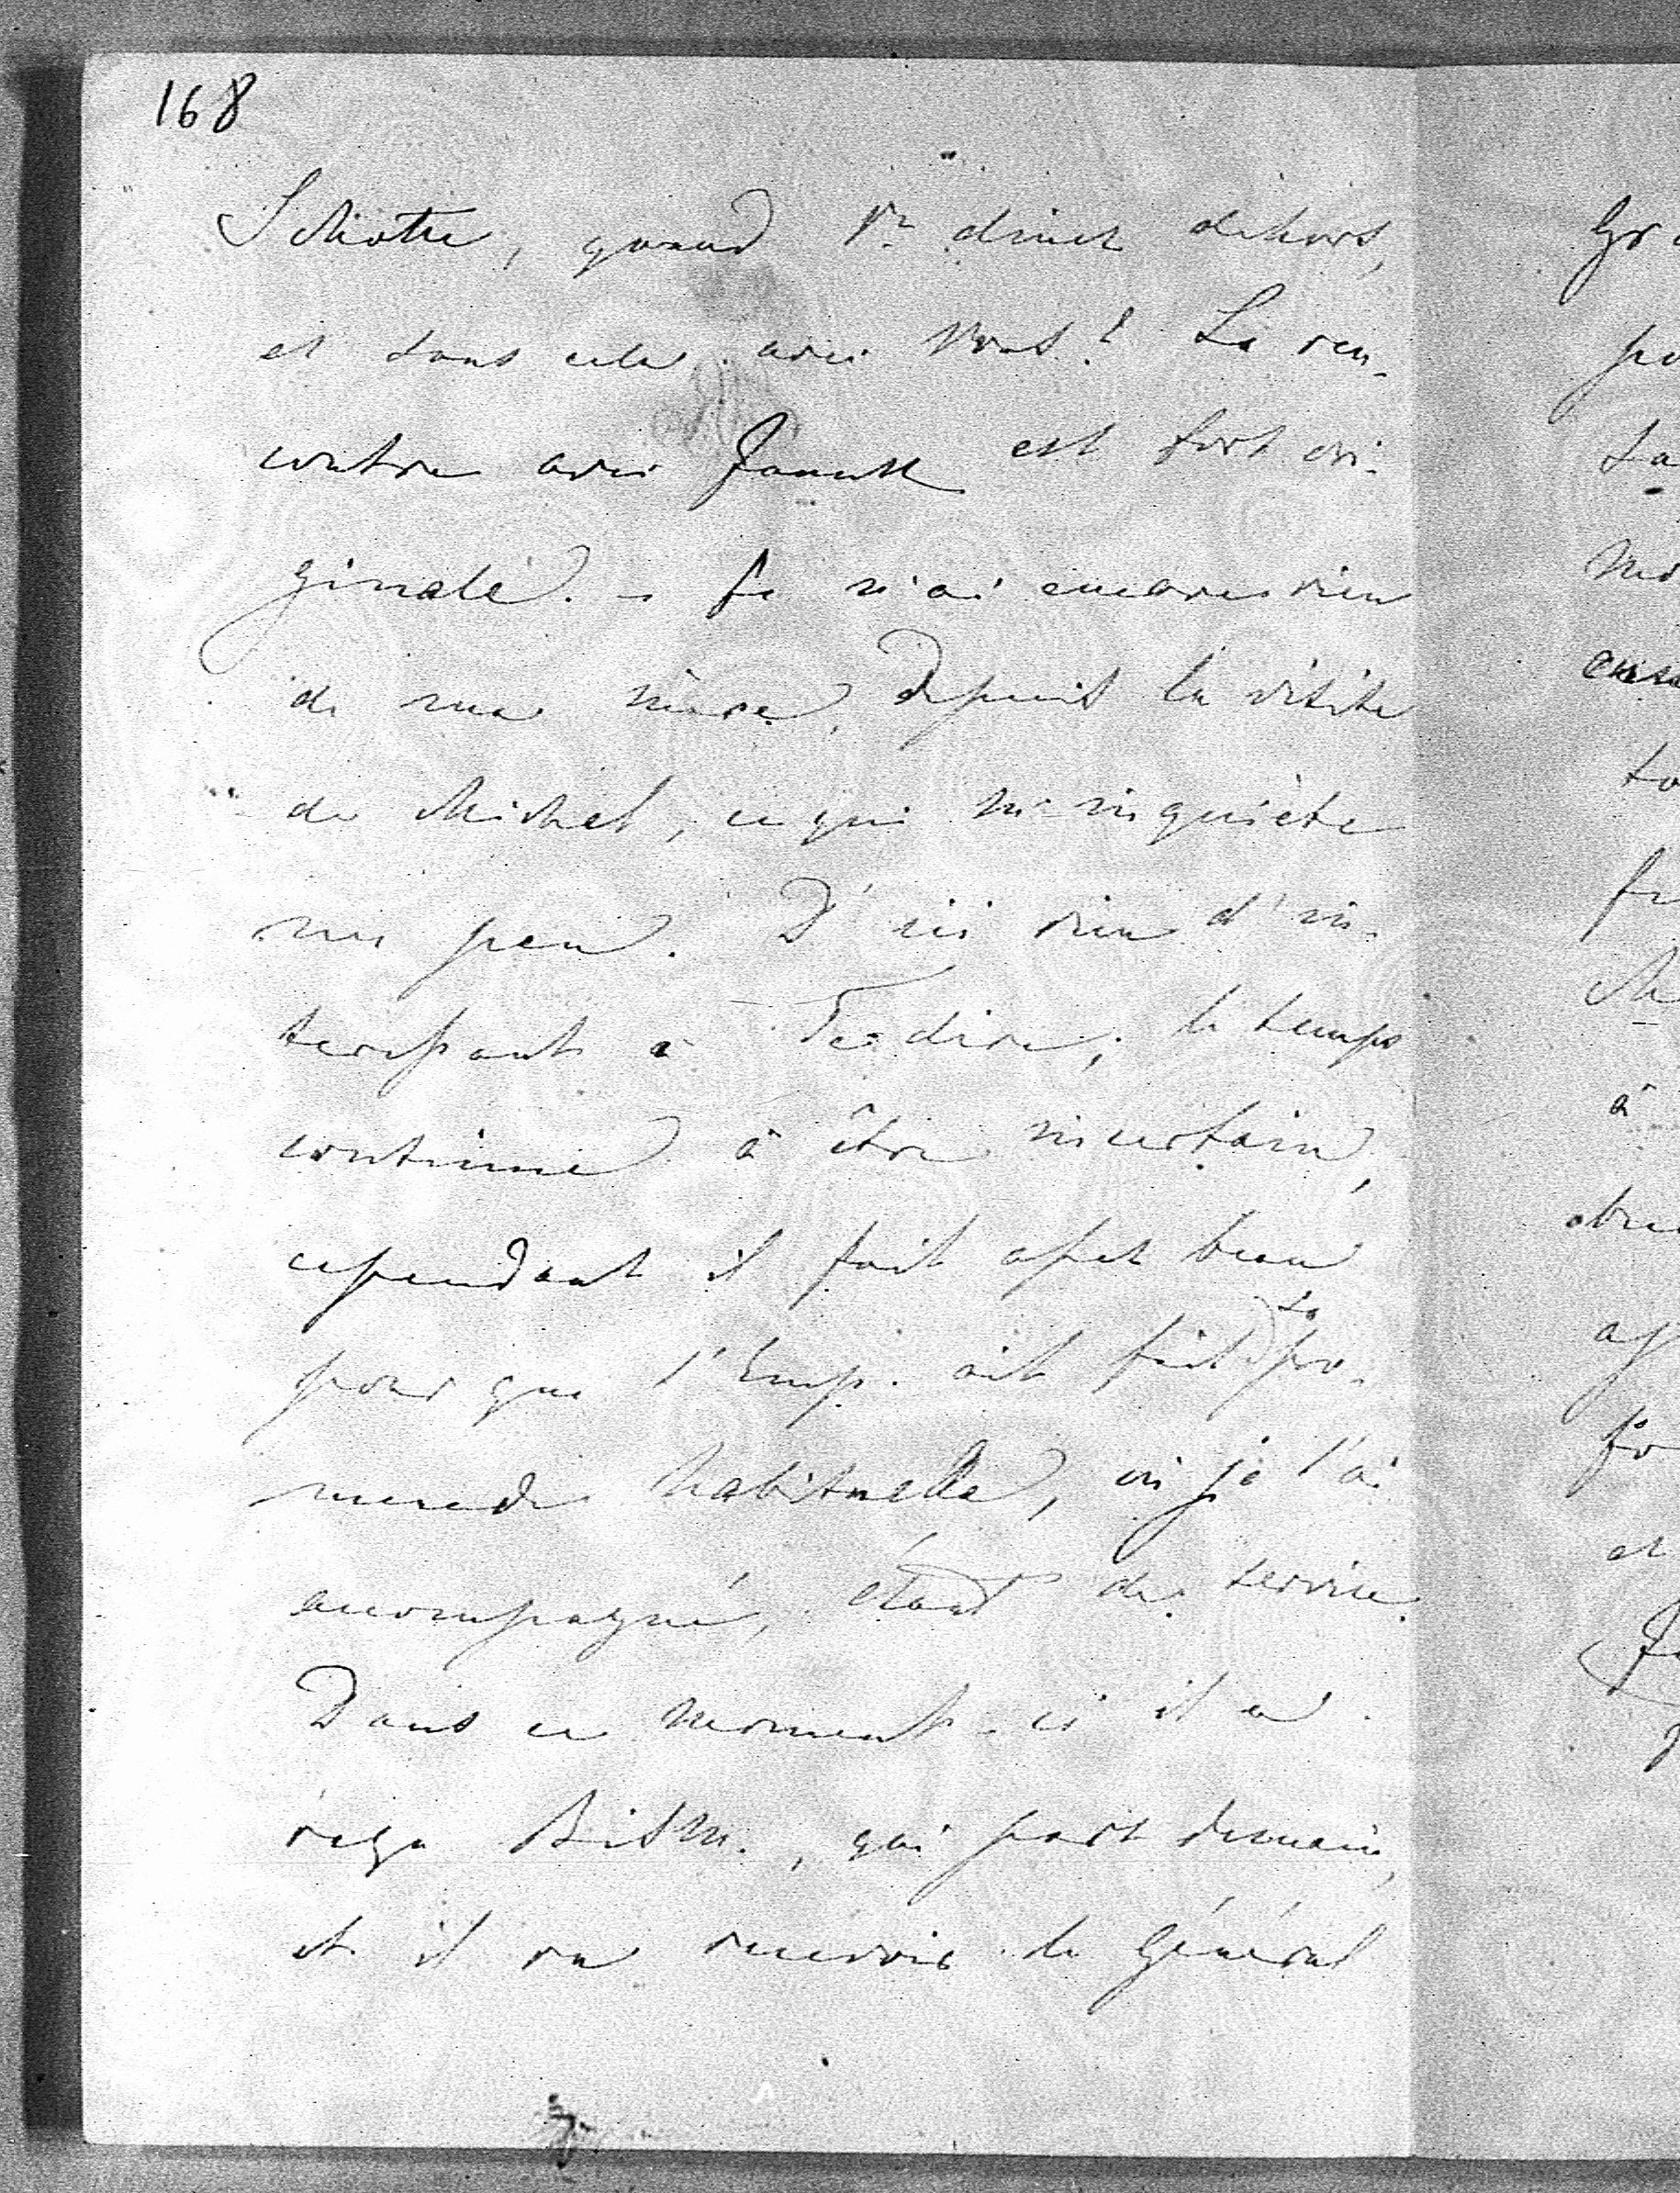 168
Schotte, quand Vs dinez dehors,
et sans cela avec Vous? La ren-
contre avec Fanck est fort ori-
ginale. – Je n'ai encore rien
de ma mère, depuis la visite
de Michel, ce qui m'inquiète
un peu. D'ici rien d'in-
teressant à Te dire; le temps
continue à être incertain,
cependant il fait assez beau
pour que l'Emp. ait fait sa pro-
menade habituelle, où je l'ai
accompagné, étant de service.
Dans ce moment-ci il a
reçu Bism., qui part demain,
et il va recevoir le Général